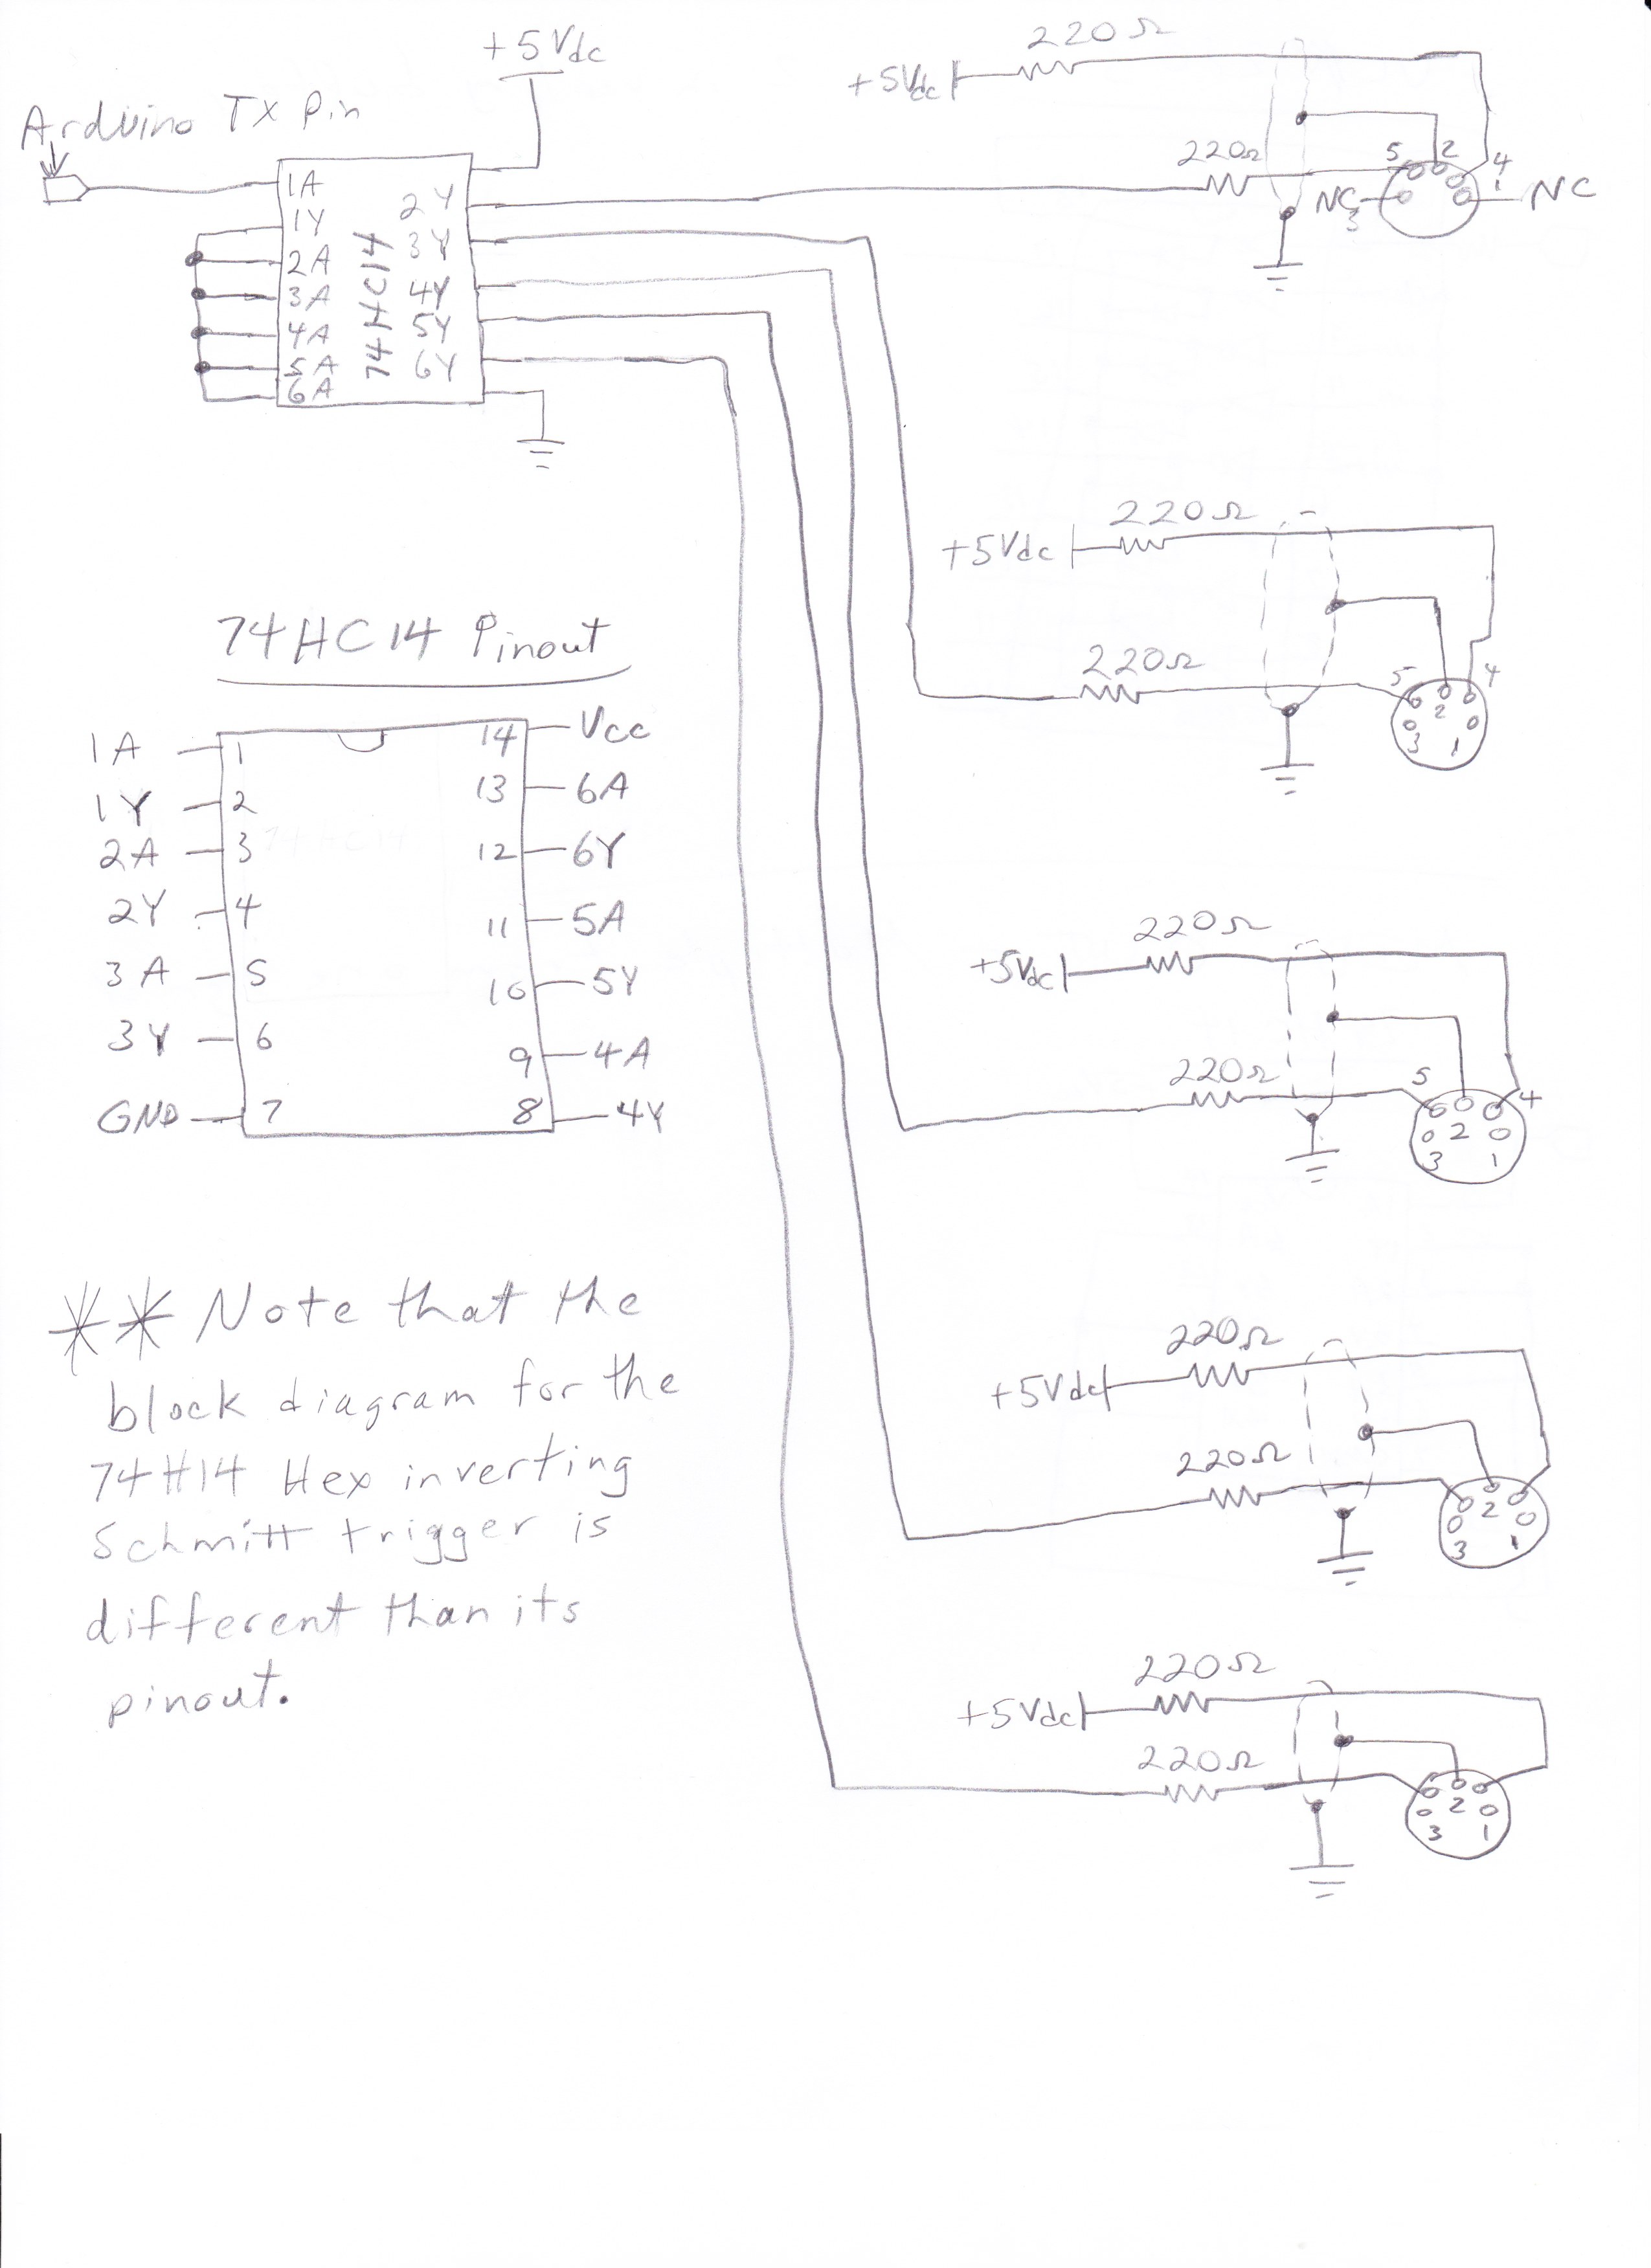 +5Vdc
Arduino TX Pin
1A
1Y
2A
3A
4A
5A
6A
74HC14
2Y
3Y
4Y
5Y
6Y
220Ω
+5Vdc
220Ω
5 2 4
NC 3
1 NC
220Ω
+5Vdc
220Ω
5 4
2
3 1
74HC14 Pinout
1A 1
1Y 2
2A 3
2Y 4
3A 5
3Y 6
GND 7
14 Vcc
13 6A
12 6Y
11 5A
10 5Y
9 4A
8 4Y
220Ω
+5Vdc
220Ω
5 4
2
3 1
** Note that the
block diagram for the
74H14 Hex inverting
Schmitt trigger is
different than its
pinout.
220Ω
+5Vdc
220Ω
2
3 1
220Ω
+5Vdc
220Ω
2
3 1